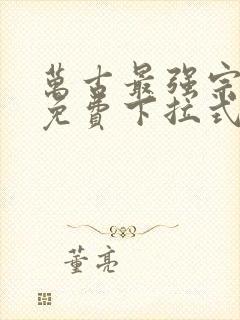 萬古最强宗
免費下拉式
董亮